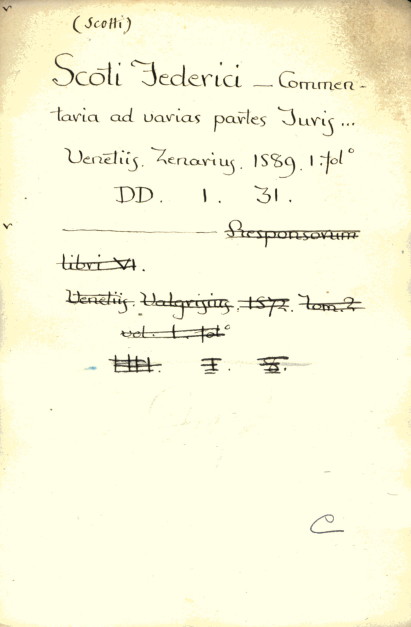 (Scotti)
Scoti Federici — Commen-
taria ad varias partes Juris...
Venetiis. Zenarius. 1589. 1. fol°
DD. 1. 31.
———— Responsorum
libri VI.
Venetiis. Valgrisius. 1572. Tom. 2
vol. 1. fol°
I.
C